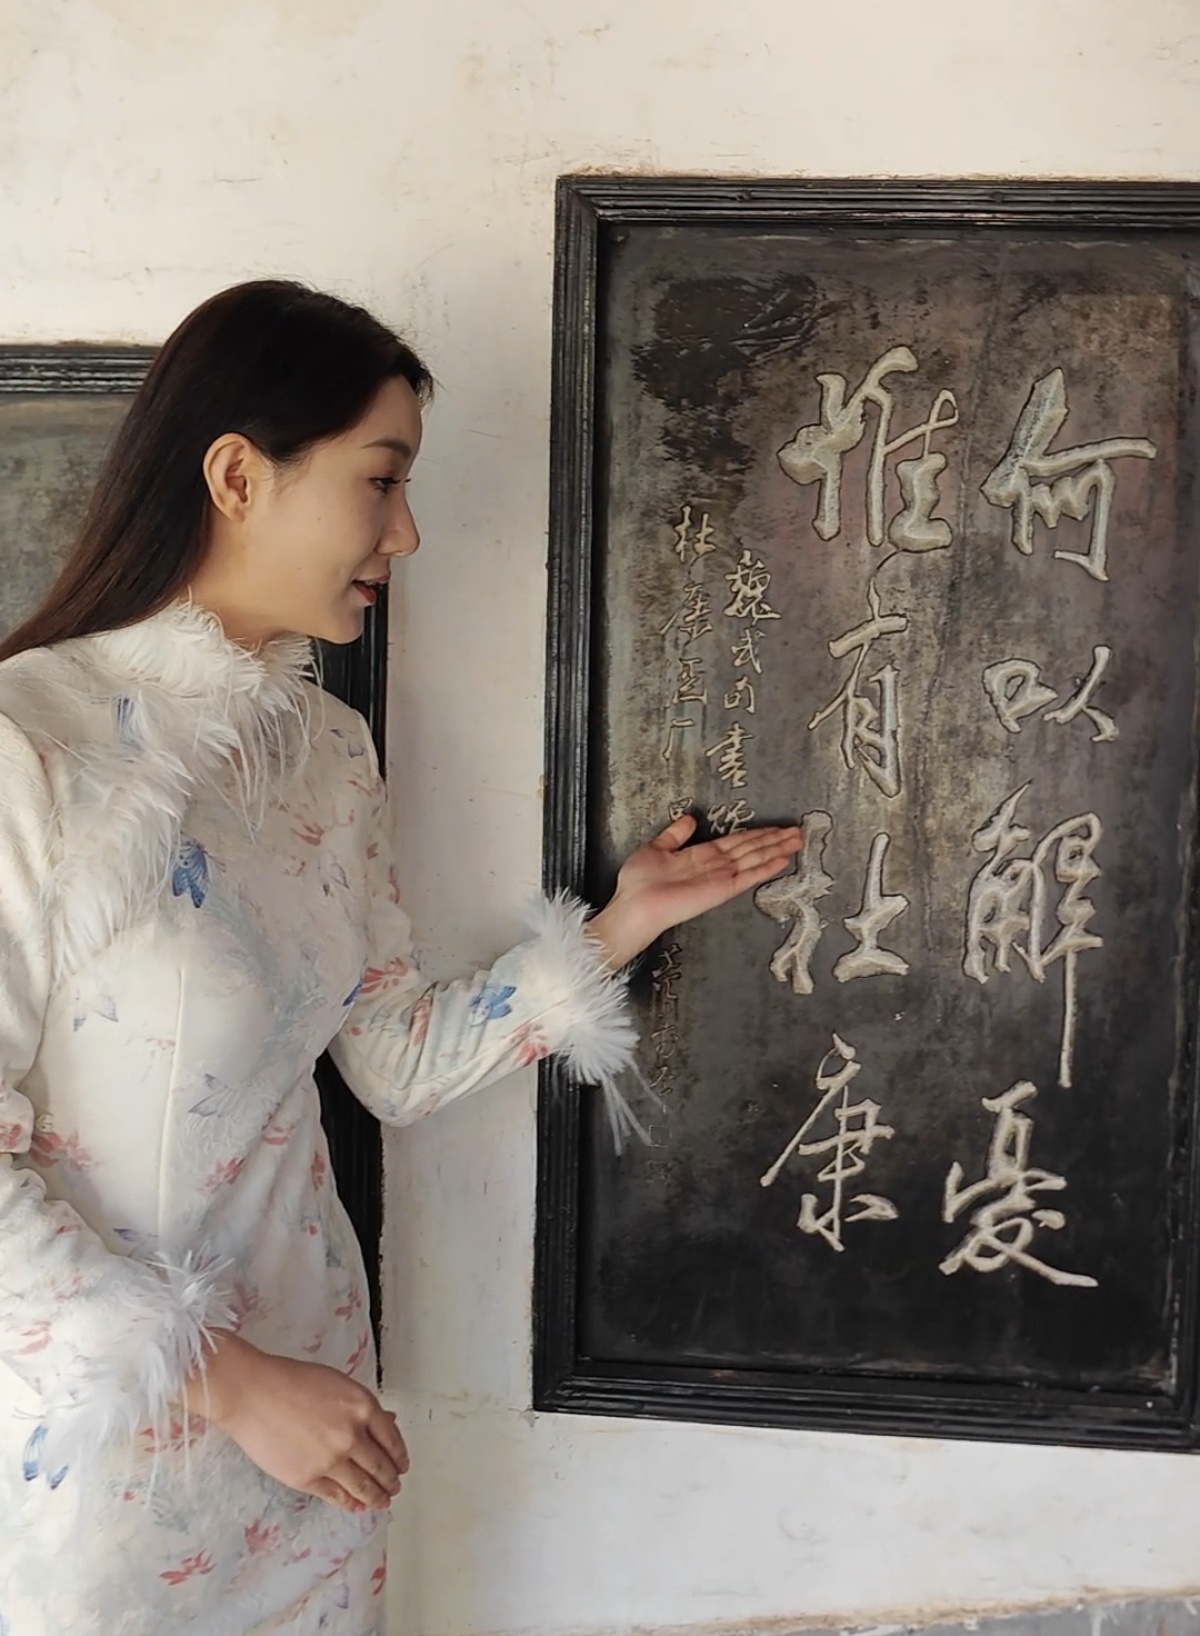 何以解憂
惟有杜康
魏武句書
杜康酒厂